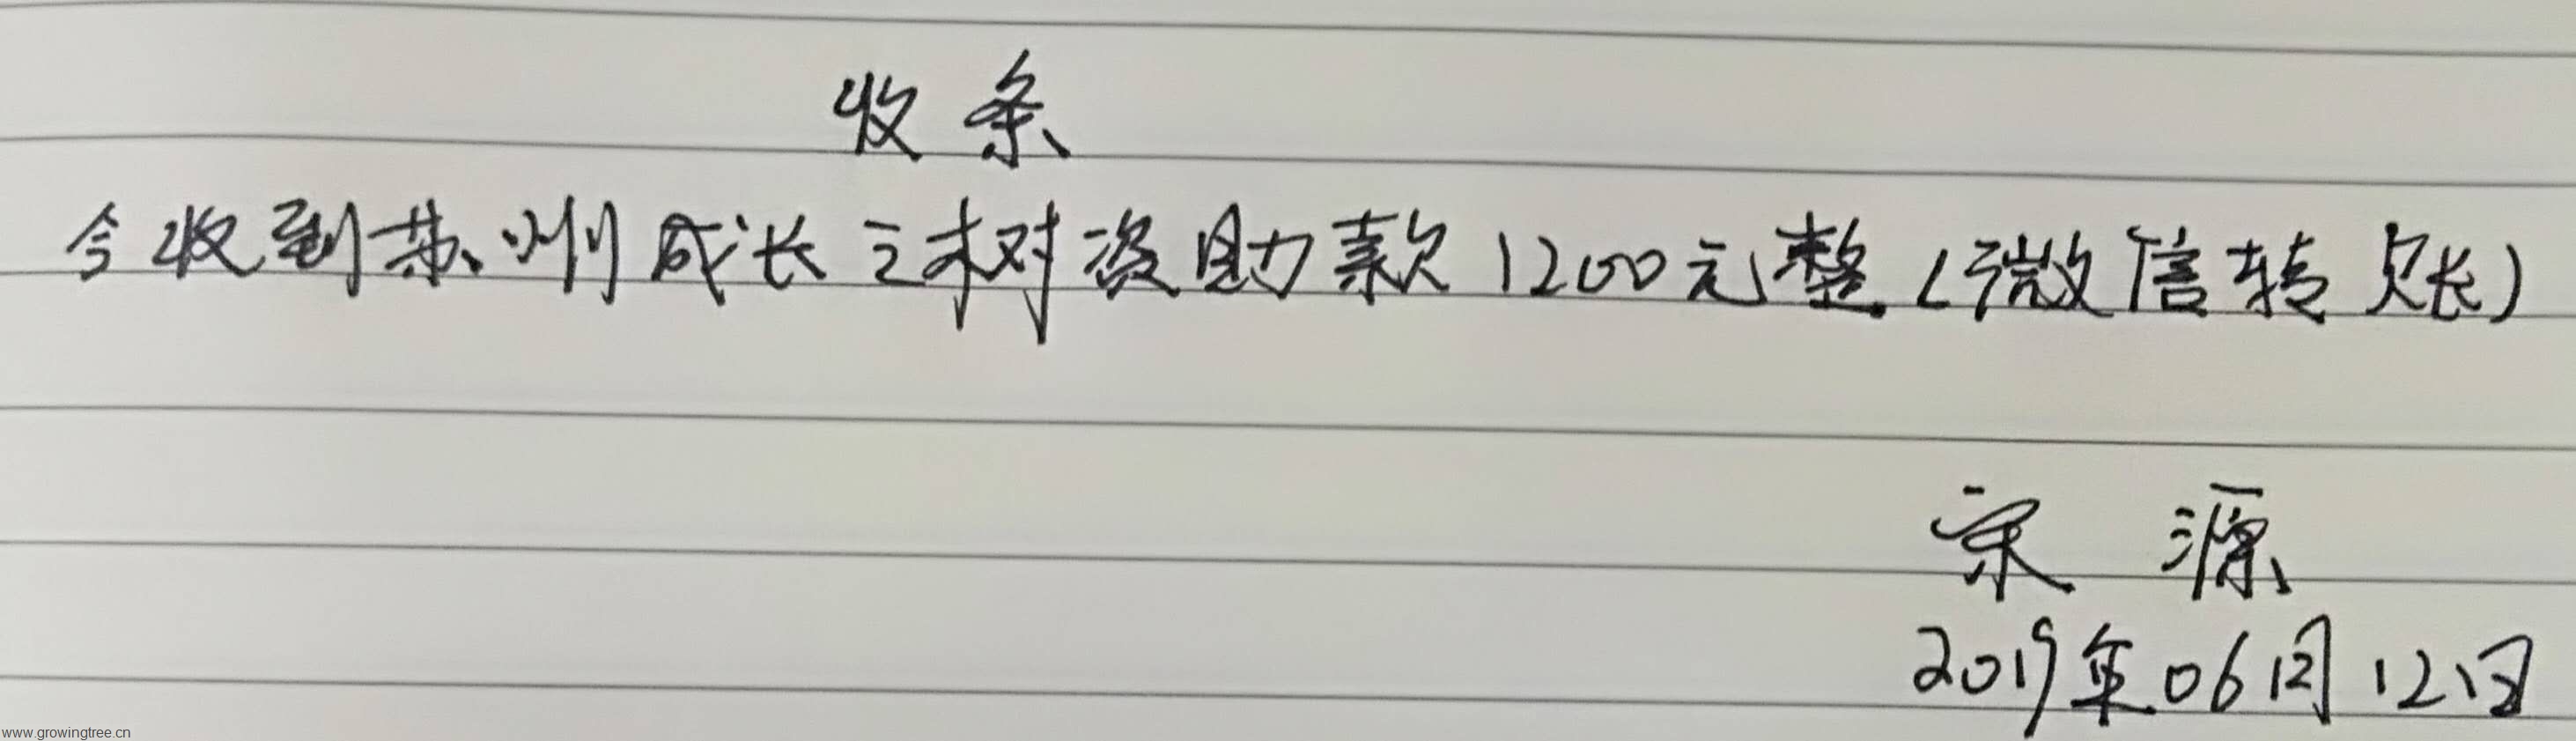 收条
今收到苏州成长之树资助款1200元整（微信转账）
宋源
2019年06月12日
www.growingtree.cn